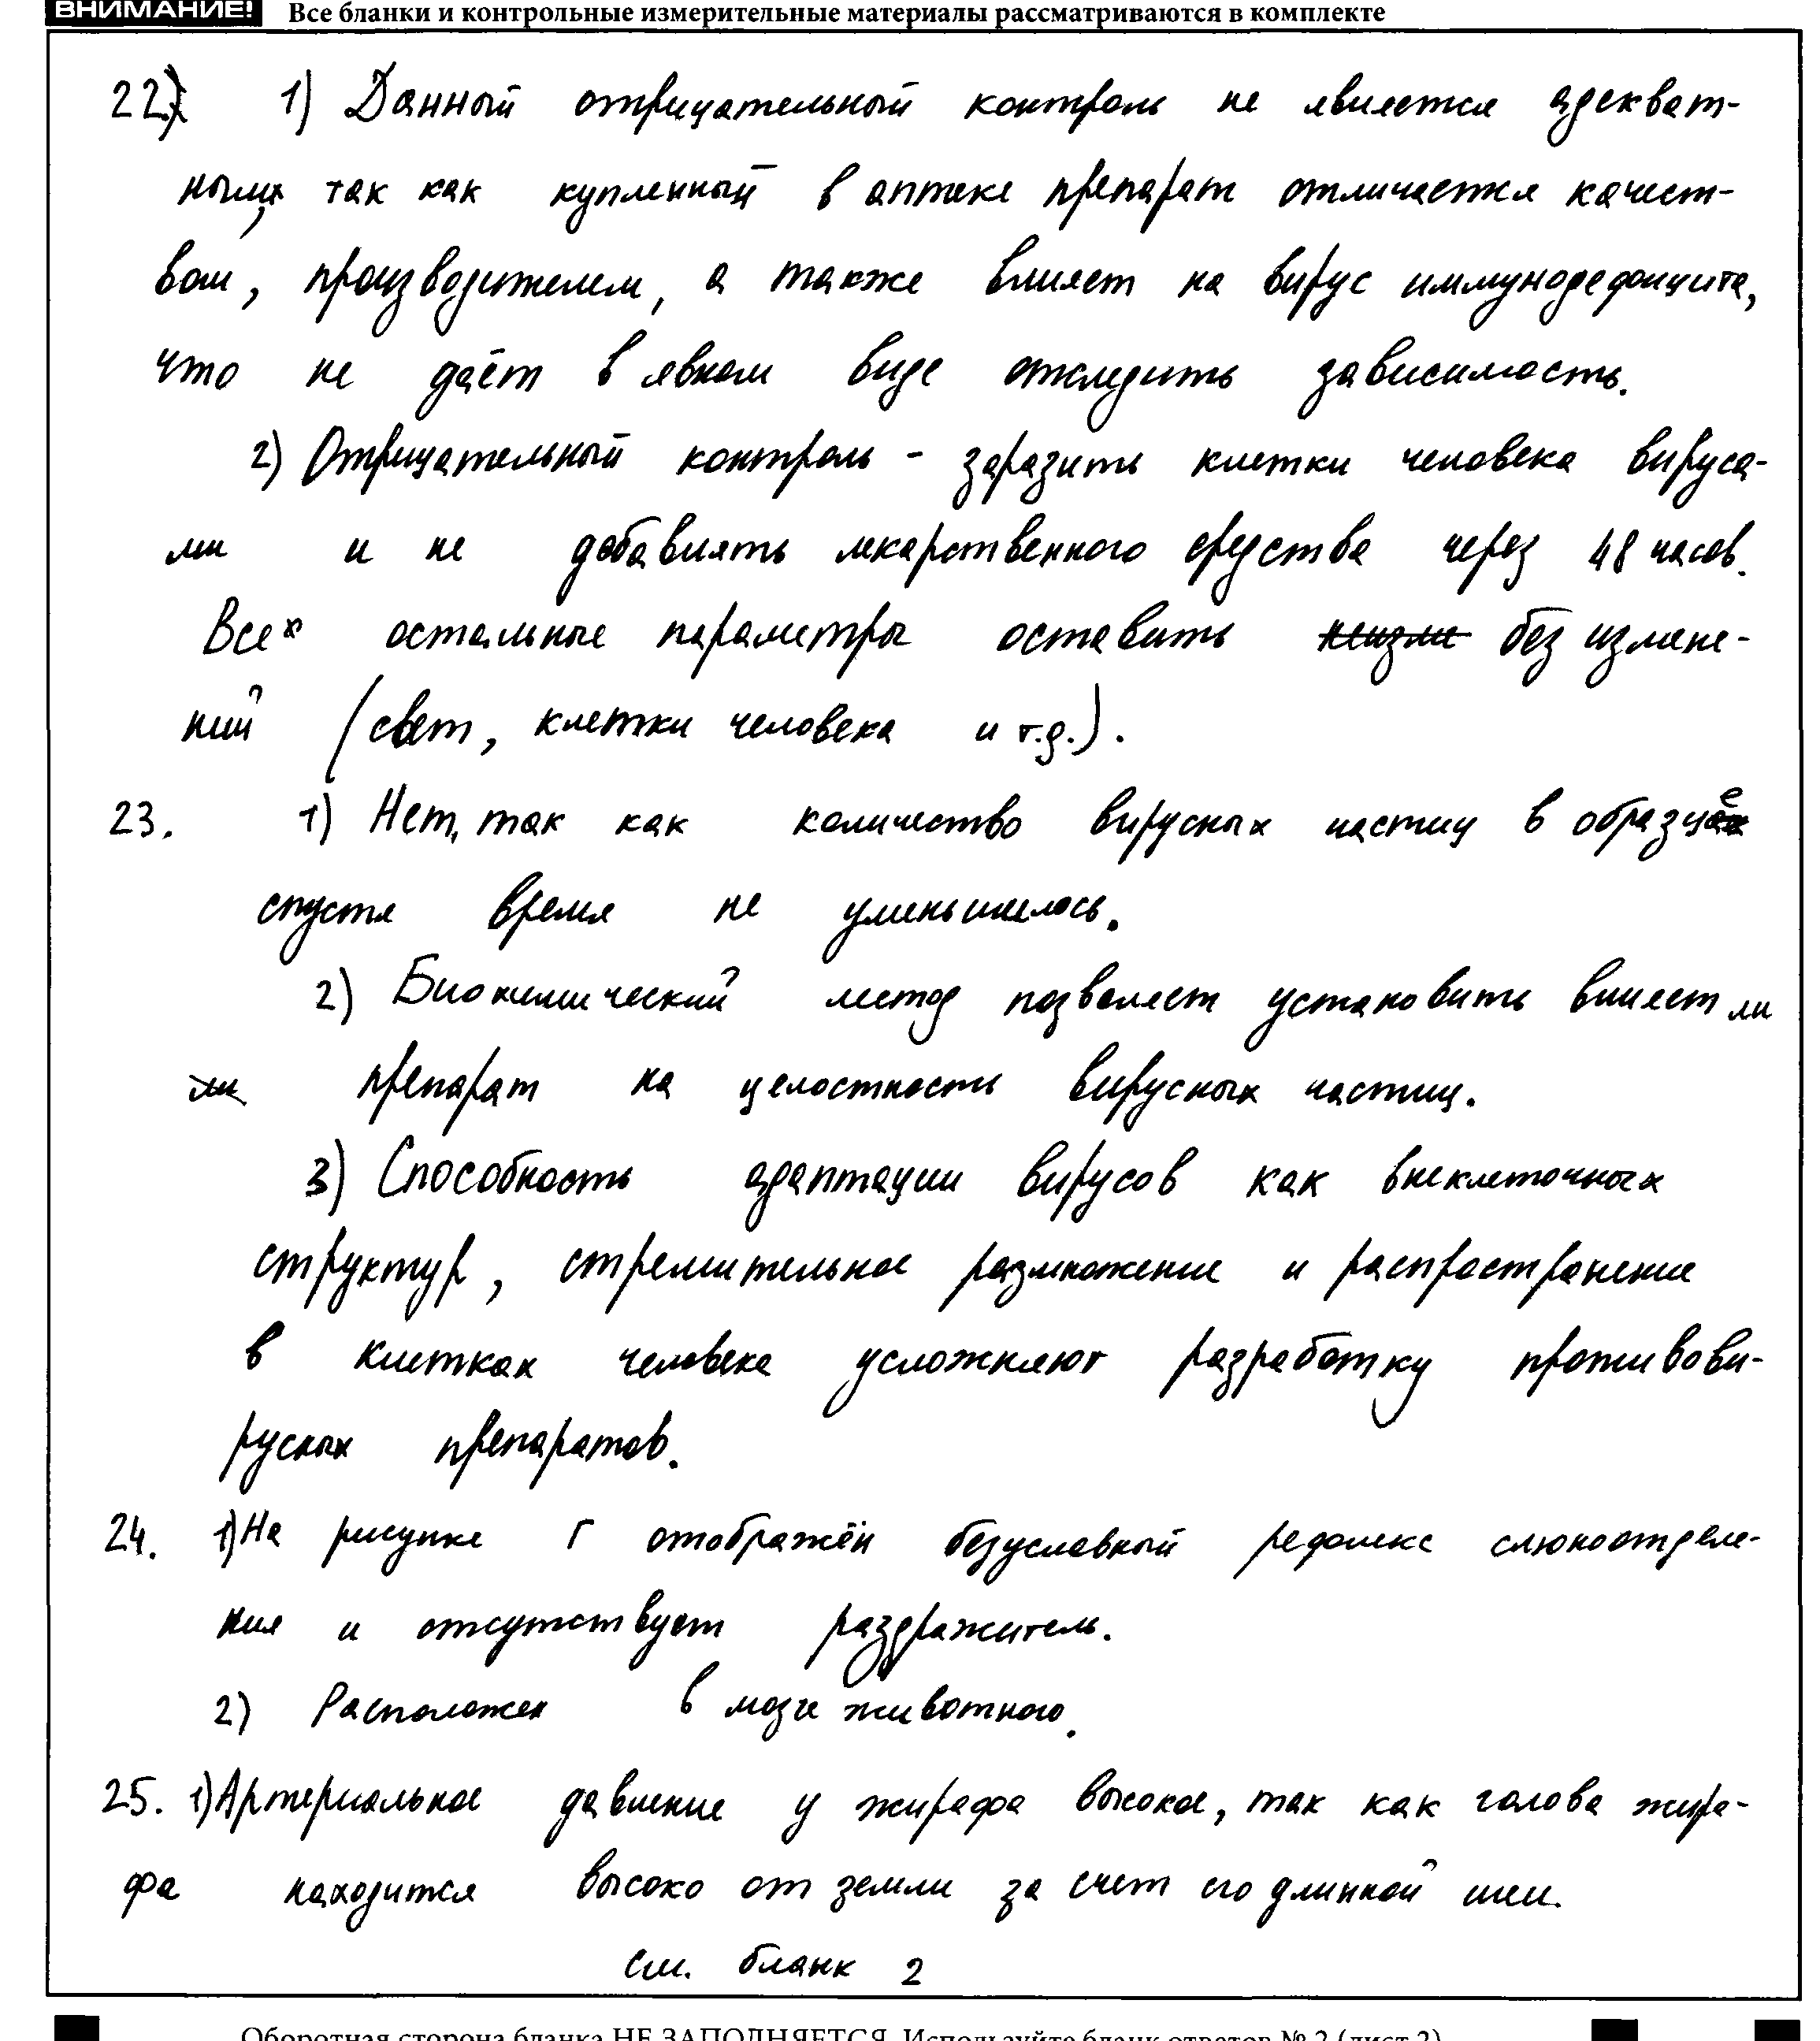 ВНИМАНИЕ! Все бланки и контрольные измерительные материалы рассматриваются в комплекте
22) 1) Данный отрицательный контроль не является адекват-
ным, так как купленный в аптеке препарат отличается качест-
вом, производителем, а также влияет на вирус иммунодефицита,
что не даёт в явном виде отследить зависимость.
2) Отрицательный контроль - заразить клетки человека вируса-
ми и не добавлять лекарственного средства через 48 часов.
Все остальные параметры оставить неизме без измене-
ний (свет, клетки человека и т.д.).
23. 1) Нет, так как количество вирусных частиц в образце
спустя время не уменьшилось.
2) Биохимический метод позволяет установить влияет ли
ли препарат на целостность вирусных частиц.
3) Способность адаптации вирусов как внеклеточных
структур, стремительное размножение и распространение
в клетках человека усложняют разработку противови-
русных препаратов.
24. 1) На рисунке Г отображён безусловный рефлекс слюноотделе-
ния и отсутствует раздражитель.
2) Расположен в мозге животного.
25. 1) Артериальное давление у жирафа высокое, так как голова жира-
фа находится высоко от земли за счет его длинной шеи.
См. бланк 2
Оборотная сторона бланка НЕ ЗАПОЛНЯЕТСЯ. Используйте бланк ответов № 2 (лист 2)